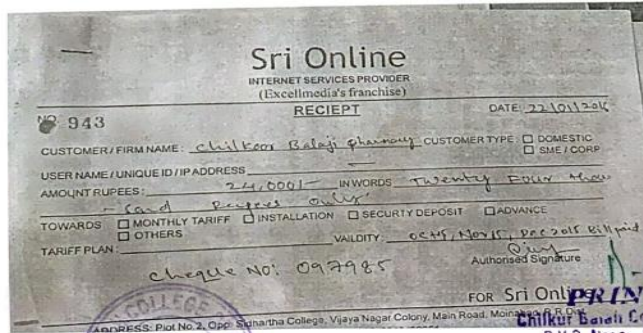 Sri Online
INTERNET SERVICES PROVIDER
(Excellmedia's franchise)
RECIEPT
NO. 943 DATE: 22/01/2016
CUSTOMER / FIRM NAME: Chilkoor Balaji pharmacy CUSTOMER TYPE: DOMESTIC
SME / CORP
USER NAME / UNIQUE ID / IP ADDRESS
AMOUNT RUPEES: 24,000/- IN WORDS Twenty Four thou
- sand Rupees only
TOWARDS MONTHLY TARIFF INSTALLATION SECURTY DEPOSIT ADVANCE
OTHERS
TARIFF PLAN: VAILDITY: Oct15, Nov15, Dec 2015 Bill paid
Cheque NO: 097985
Authorised Signature
FOR Sri Online
PRIN
COLLEGE
Chilkur Balaji C
ADDRESS: Plot No.2, Opp. Sidhartha College, Vijaya Nagar Colony, Main Road, Moinabad, R.R.Dist